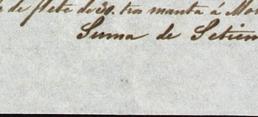 de flete de 30. tra manta á Mon
Suma de Setiem